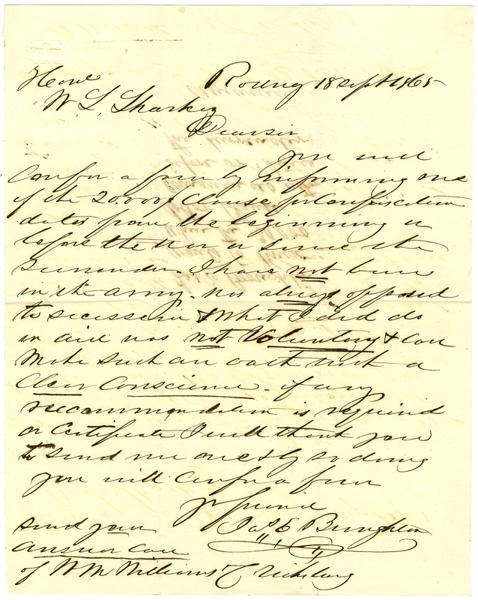 Honl 18 Sept 1865
W L Sharkey
Dear sir
you will
Confer a favor by informing me
if the 20.000$ Clause for Confiscation
dates from the beginning or
before the War or since the
Surrender. I have not been
in the army. was always opposed
to secession & What I did do
in aid was not Voluntary & can
Make such an oath with a
Clear Conscience. if any
recommendation is required
or Certificate I will thank you
to send me one & by so doing
you will Confer a favor
yr friend
send your
answer Care
of WM Williams Vicksburg